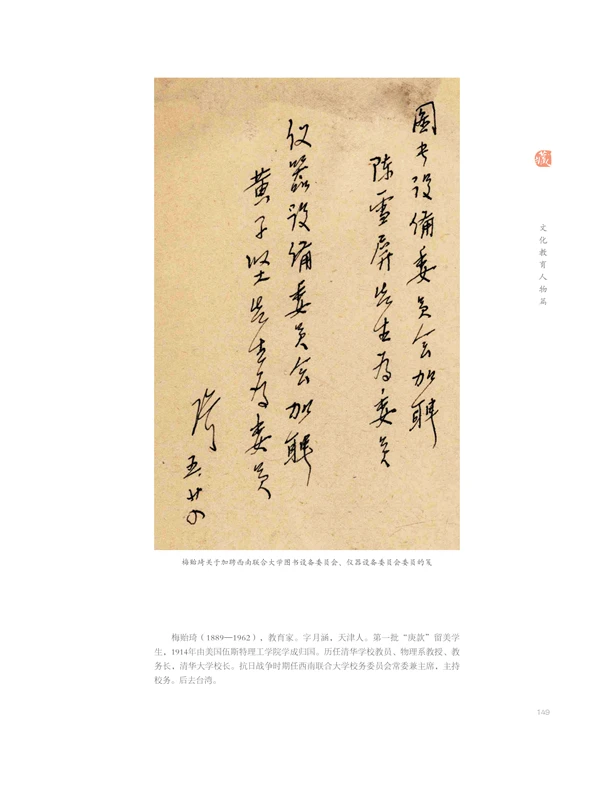 图书设備委员会加聘
陈雪屏先生为委员
仪器设備委员会加聘
黄子坚先生为委员
琦
五.廿四
文化教育人物篇
梅贻琦关于加聘西南联合大学图书设备委员会、仪器设备委员会委员的笺
梅贻琦（1889—1962），教育家。字月涵，天津人。第一批“庚款”留美学
生，1914年由美国伍斯特理工学院学成归国。历任清华学校教员、物理系教授、教
务长，清华大学校长。抗日战争时期任西南联合大学校务委员会常委兼主席，主持
校务。后去台湾。
149